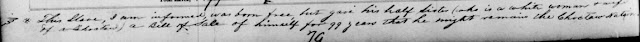 * This Slave, I am informed, was born free but gave his half Sister (who is a white woman & wife
of a Choctaw) a Bill of Sale of himself for 99 years that he might remain the Choctaw Nation
76